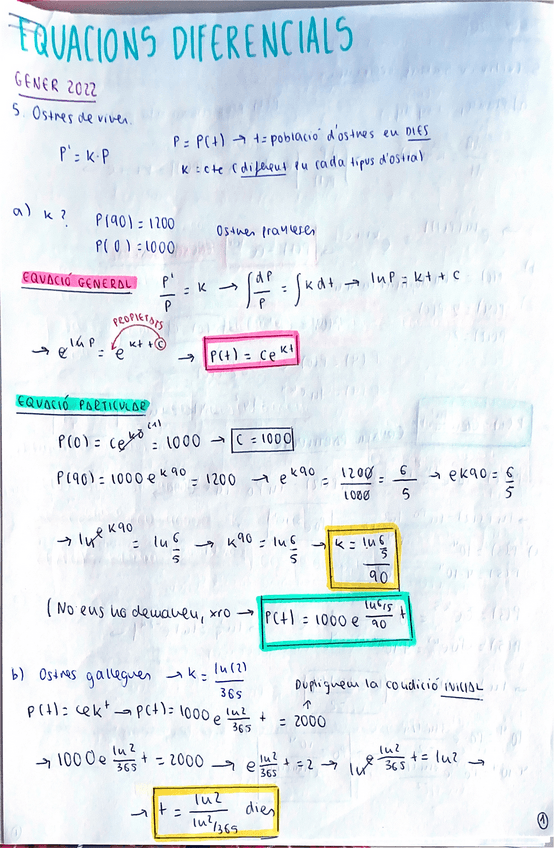 EQUACIONS DIFERENCIALS
GENER 2022
5. Ostres de viver.
P' = K·P
P = P(t) → t = població d'ostres en DIES
K = cte (diferent en cada tipus d'ostra)
a) K? P(90) = 1200
P(0) = 1000
Ostres franceses
EQUACIÓ GENERAL P'/P = K → ∫dP/P = ∫K dt → ln P = Kt + C
PROPIETATS
→ e^ln P = e^Kt + C → P(t) = Ce^Kt
EQUACIÓ PARTICULAR
P(0) = Ce^K·0 (1) = 1000 → C = 1000
P(90) = 1000 e^K90 = 1200 → e^K90 = 1200/1000 = 6/5 → eK90 = 6/5
→ ln e^K90 = ln 6/5 → K90 = ln 6/5 → K = ln 6/5 / 90
(No ens ho demanen, xro → P(t) = 1000 e^ln6/5 / 90 t
b) Ostres gallegues → K = ln(2)/365
Dupliquem la condició INICIAL
↑
P(t) = Cek^t → P(t) = 1000 e ln2/365 t = 2000
→ 1000 e ln2/365 t = 2000 → e ln2/365 t = 2 → ln e ln2/365 t = ln2 →
→ t = ln2 / ln2/365 dies
1